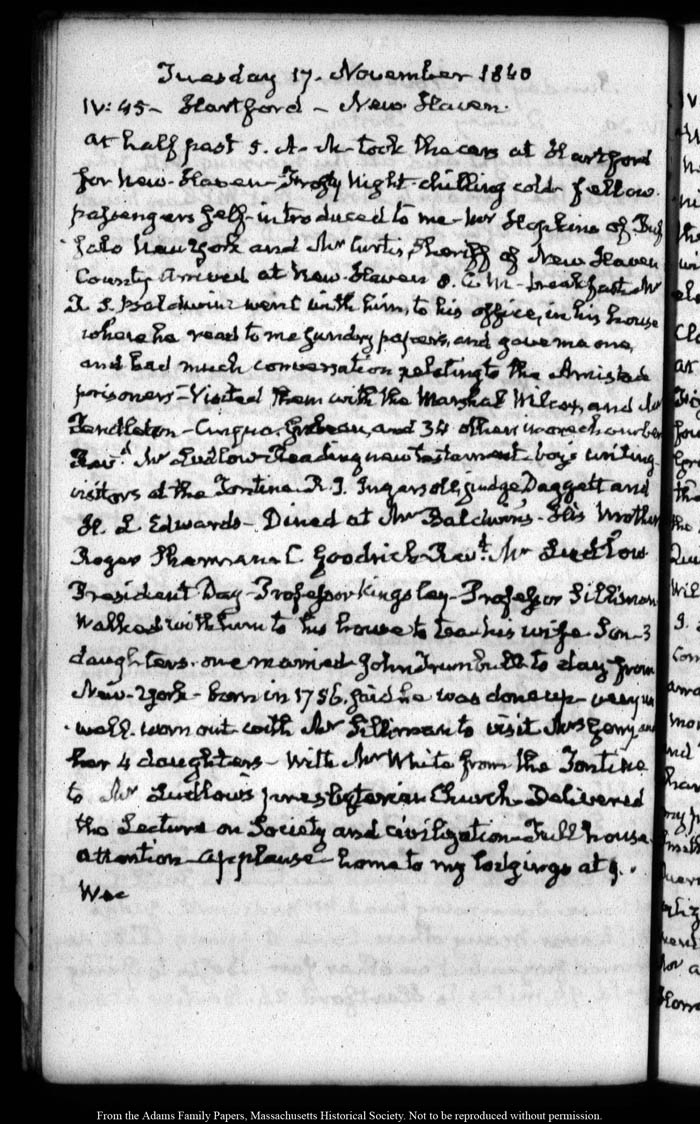 Tuesday 17. November 1840
IV: 45 – Hartford – New Haven.
At half past 5. A. M. took the cars at Hartford
for New-Haven – Frosty Night – chilling cold – fellow
passengers self-introduced to me – Mr Hopkins of Buf
falo New York and Mr Curtis, Sheriff of New Haven
County. Arrived at New-Haven 8. A. M. – breakfast. Mr
R. S. Baldwin – went with him, to his office, in his house
where he read to me sundry papers, and gave me one,
and had much conversation relating to the Amistad
prisoners – Visited them with the Marshal Wilcox, and Mr
Pendleton – Cinque, Grabeau, and 34 others in one chamber
Revd Mr Ludlow – Reading new testament – boys writing
visitors at the Tontine R. I. Ingersoll, judge Daggett and
H. L. Edwards – Dined at Mr Baldwin's – His Mother
Roger Sherman C Goodrich – Revd Mr Ludlow
President Day – Professor Kingsley – Professor Silliman
Walked with him to his house to tea his wife – Son – 3
daughters. one married – John Trumbull to day from
New-York – born in 1756. said he was done up – very un
well. worn out – with Mr Silliman to visit Mrs Gerry and
her 4 daughters – With Mr White from the Tontine
to Mr Ludlow's presbyterian Church – Delivered
the Lecture on Society and civilization – Full house
attention – applause – home to my lodgings at 9.
We
From the Adams Family Papers, Massachusetts Historical Society. Not to be reproduced without permission.